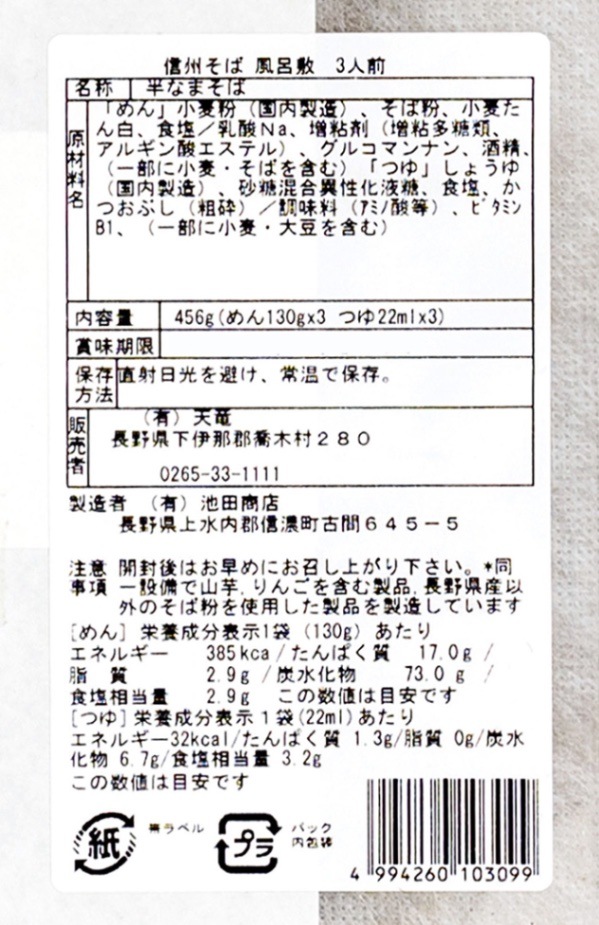 信州そば 風呂敷 3人前
名称 半なまそば
原材料名
「めん」小麦粉（国内製造）、そば粉、小麦た
ん白、食塩／乳酸Na、増粘剤（増粘多糖類、
アルギン酸エステル）、グルコマンナン、酒精、
（一部に小麦・そばを含む）「つゆ」しょうゆ
（国内製造）、砂糖混合異性化液糖、食塩、か
つおぶし（粗砕）／調味料（アミノ酸等）、ビタミン
B1、（一部に小麦・大豆を含む）
内容量 456g(めん130gx3 つゆ22mlx3)
賞味期限
保存方法 直射日光を避け、常温で保存。
販売者
（有）天竜
長野県下伊那郡喬木村２８０
0265-33-1111
製造者 （有）池田商店
長野県上水内郡信濃町古間６４５－５
注意 開封後はお早めにお召し上がり下さい。*同
事項 一設備で山芋,りんごを含む製品,長野県産以
外のそば粉を使用した製品を製造しています
[めん] 栄養成分表示1袋 (130g) あたり
エネルギー 385kca/たんぱく質 17.0g /
脂 質 2.9g /炭水化物 73.0g /
食塩相当量 2.9g この数値は目安です
[つゆ]栄養成分表示１袋(22ml)あたり
エネルギー32kcal/たんぱく質 1.3g/脂質 0g/炭水
化物 6.7g/食塩相当量 3.2g
この数値は目安です
紙 帯ラベル プラ パック
内包装
4 994260 103099